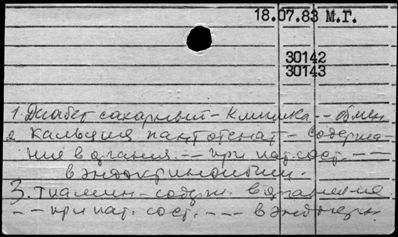 18.07.83 М.Г.
30142
30143
1. Диабет сахарный - клиника -- обмен
2. Кальция пантотенат - содержа-
ние в органах. -- при пат. сост. ---
в эндокринологии.
3. Тиамин - содерж. в организме
-- при пат. сост. --- в эндокрин.